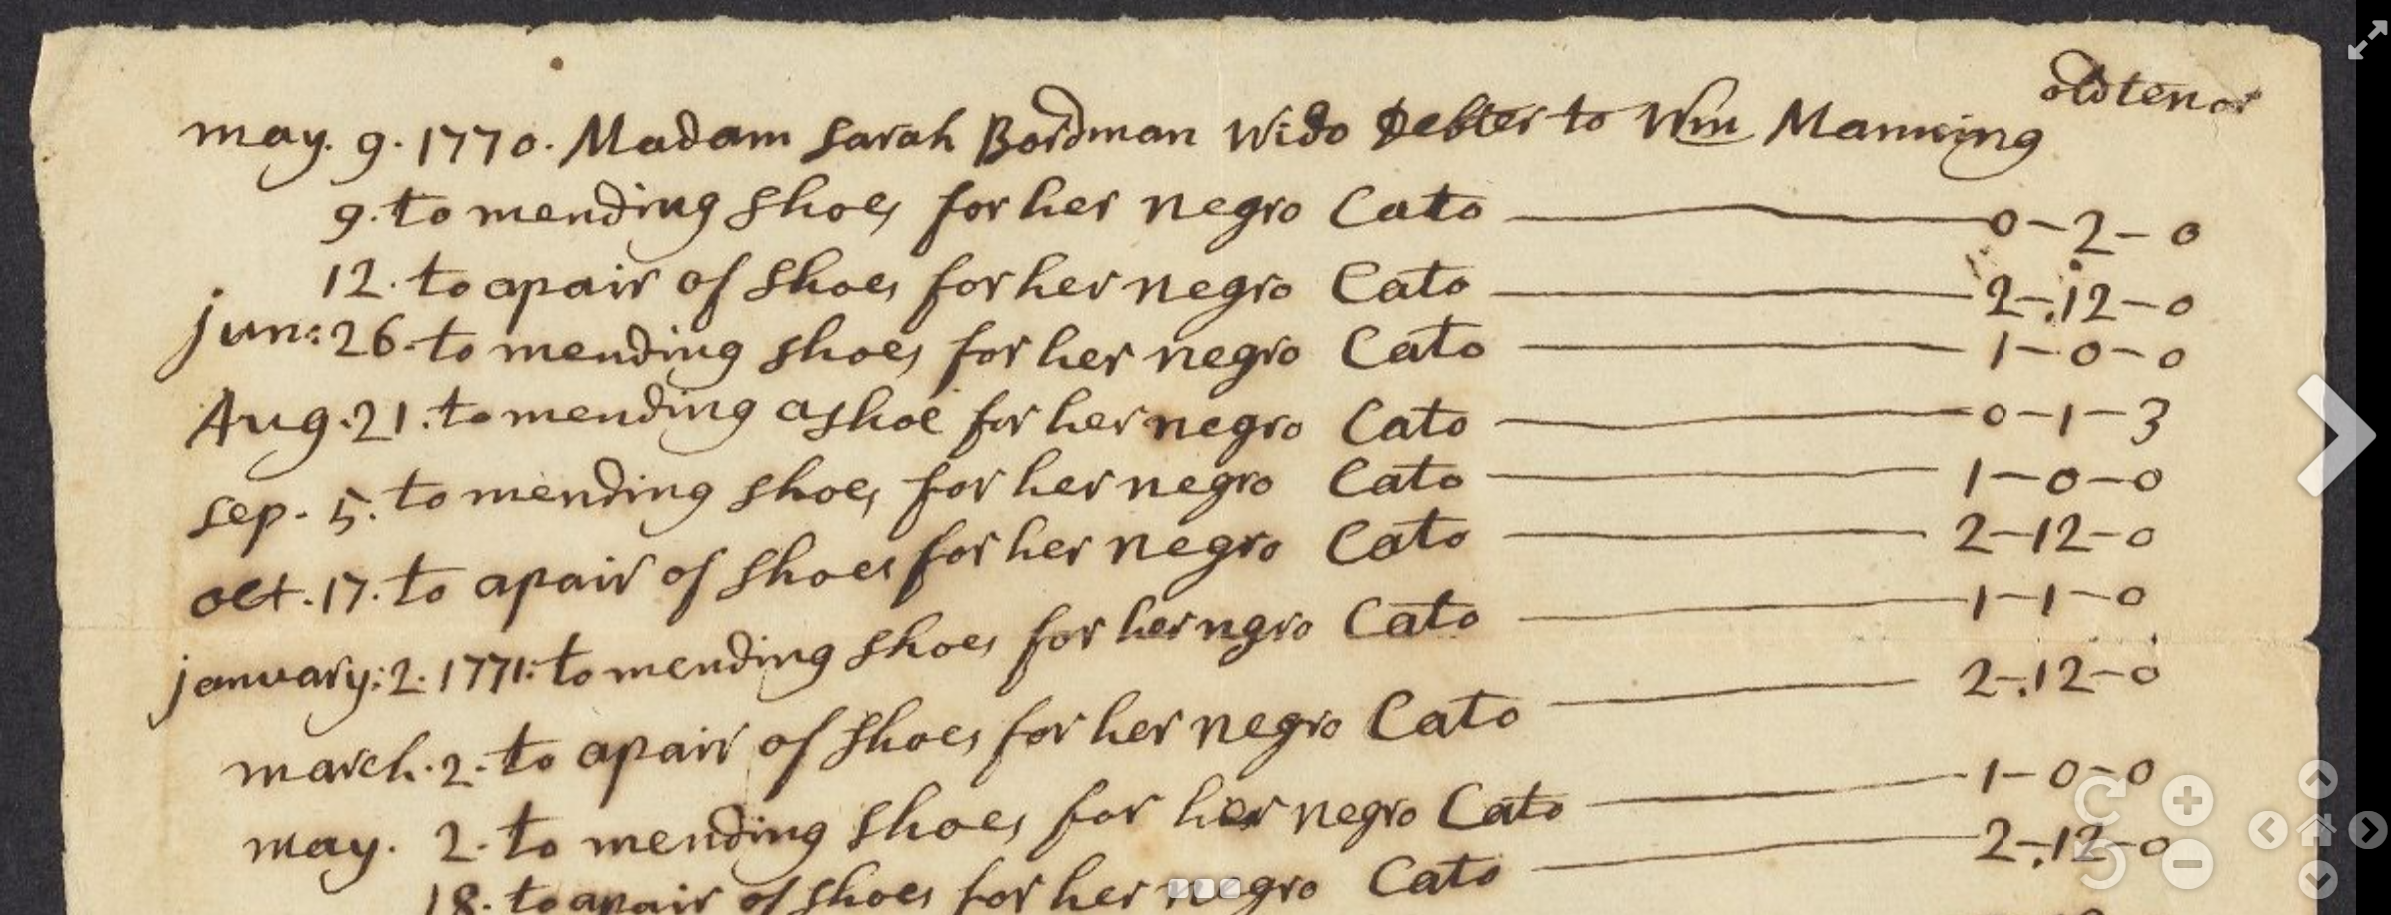 old tenor
may. 9. 1770. Madam Sarah Bordman Wido Debter to Wm Manning
9. to mending shoes for her negro Cato 0-2-0
12. to a pair of shoes for her negro Cato 2-12-0
jun: 26. to mending shoes for her negro Cato 1-0-0
Aug. 21. to mending a shoe for her negro Cato 0-1-3
sep. 5. to mending shoes for her negro Cato 1-0-0
oct. 17. to a pair of shoes for her negro Cato 2-12-0
january: 2. 1771: to mending shoes for her ngro Cato 1-1-0
march. 2. to a pair of shoes for her negro Cato 2-12-0
may. 2. to mending shoes for her negro Cato 1-0-0
18. to a pair of shoes for her negro Cato 2-12-0